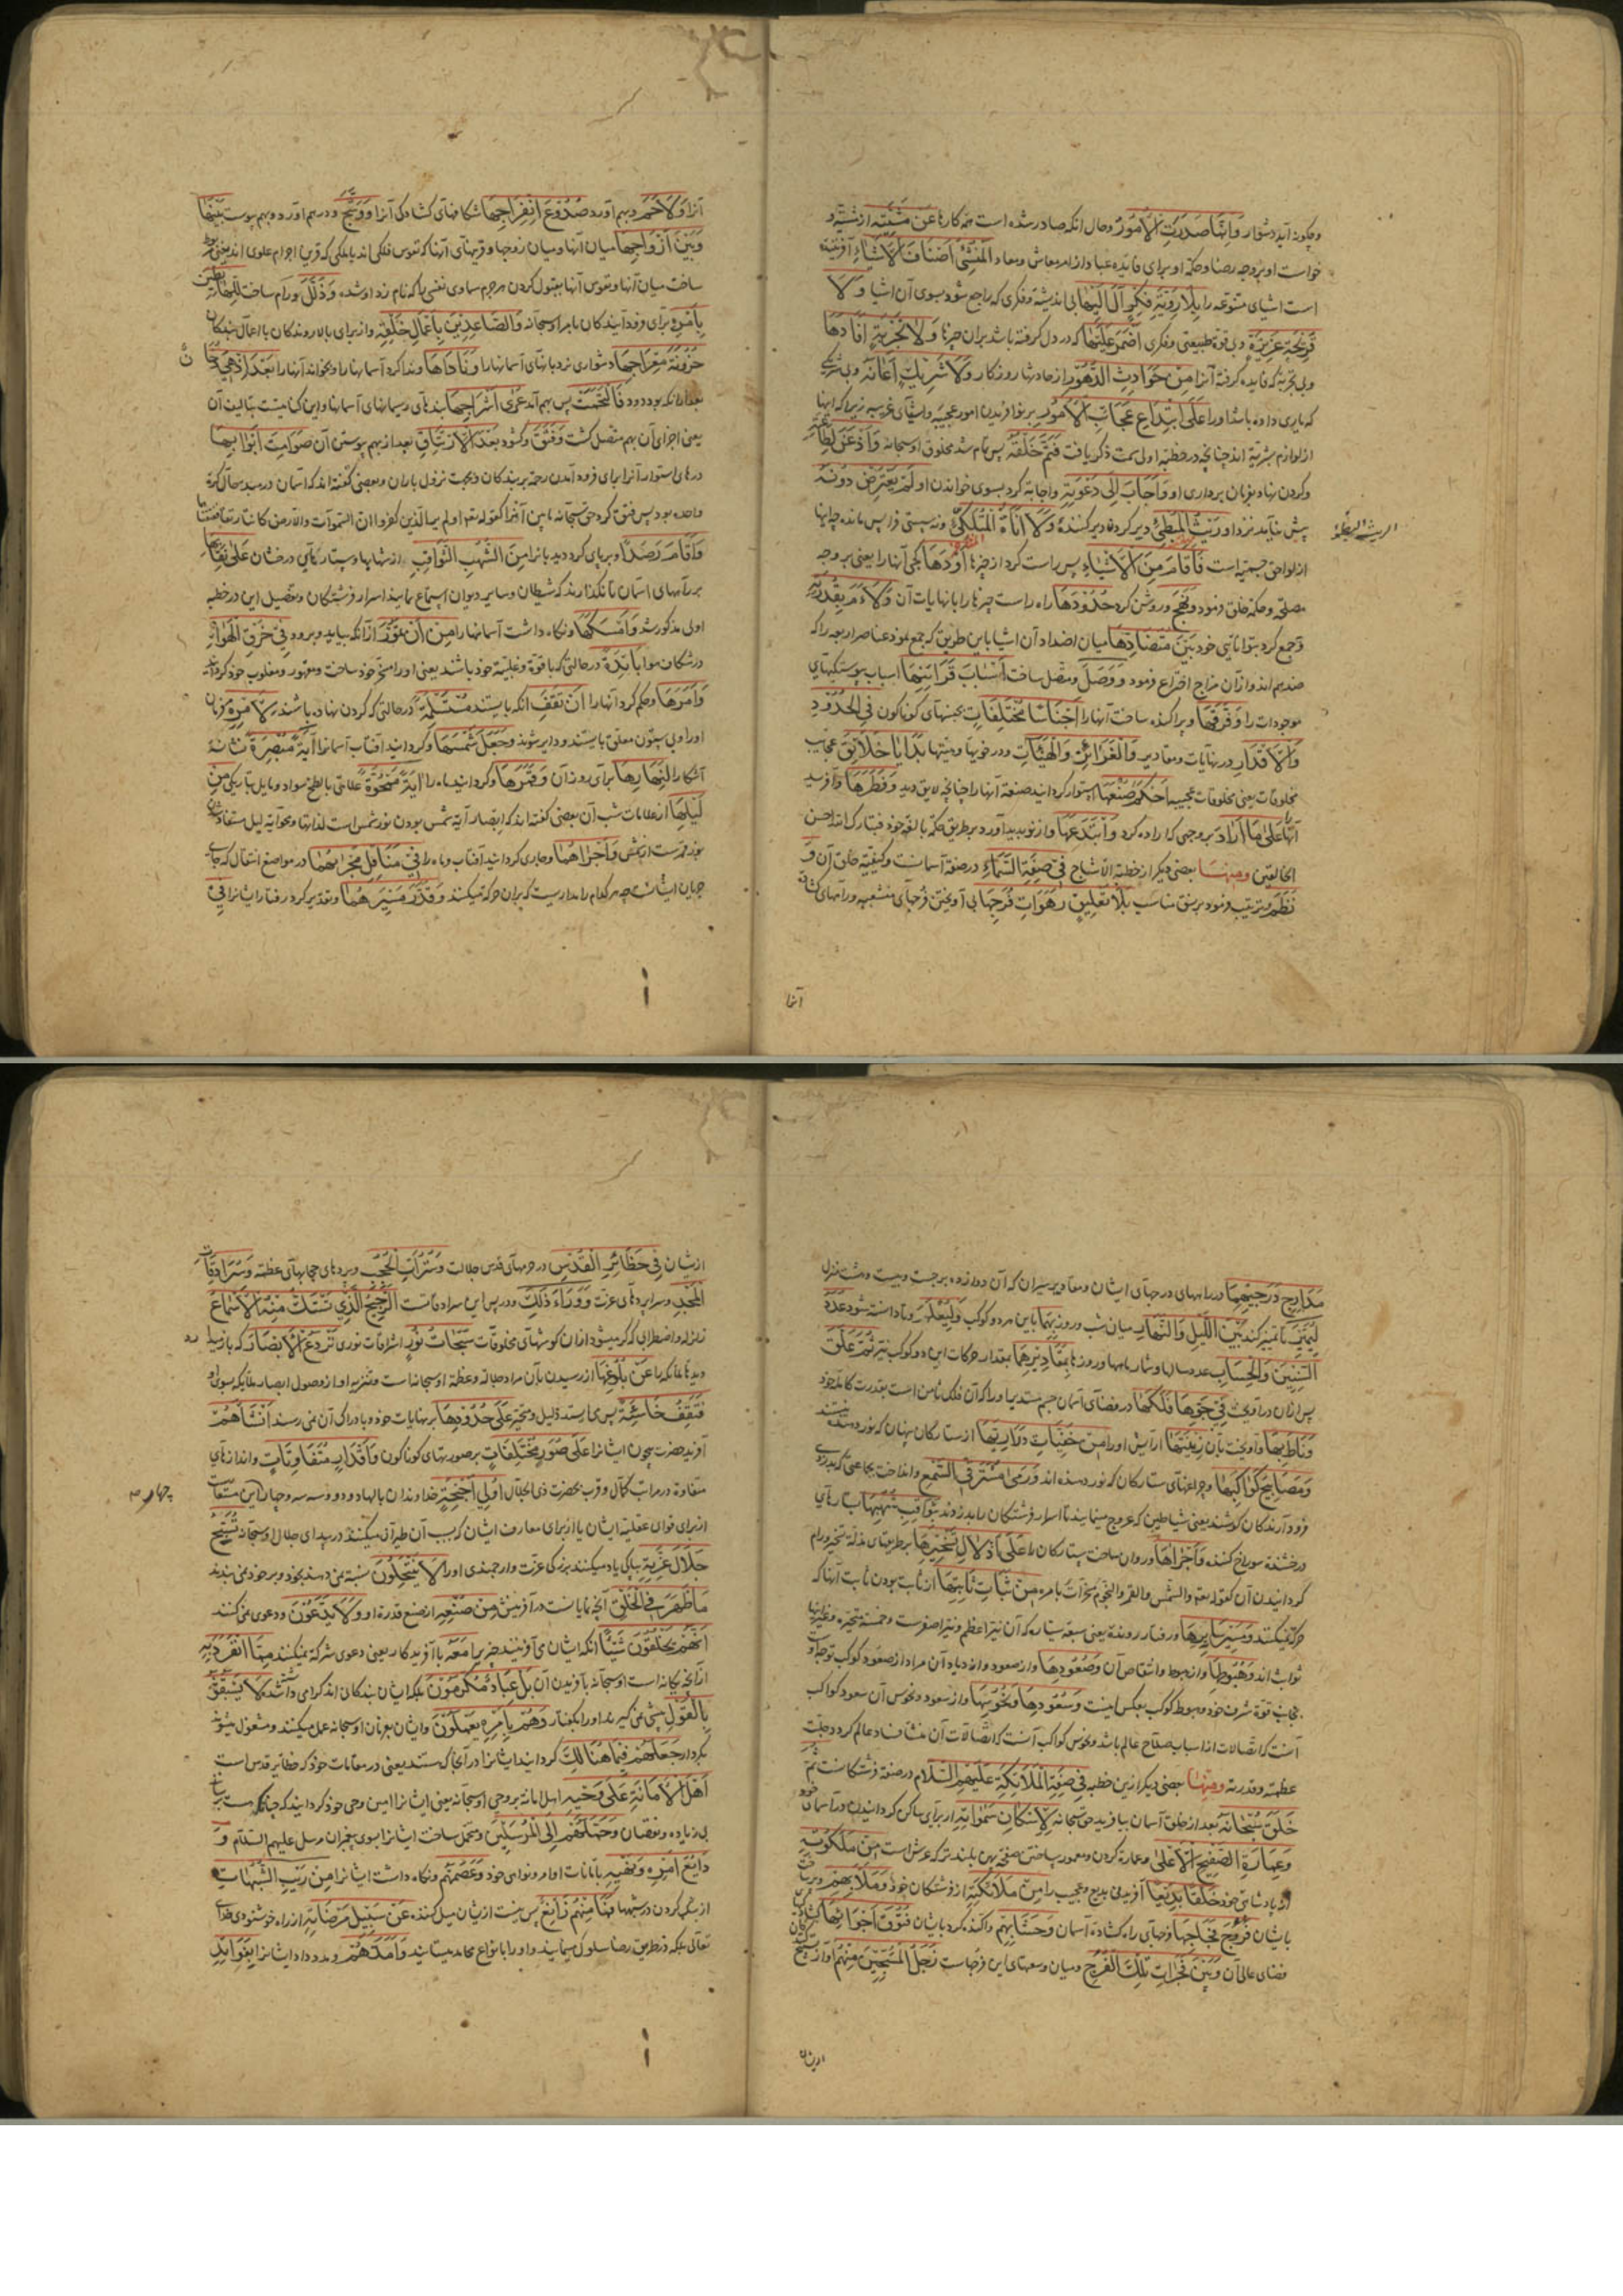 و چگونه آید دشوار وَاِنَّمَا صَدَرَتِ الْاُمُورُ و حال انکه صادر شده است همه کارها عَنْ مَشِیَّتِهِ از مشیّة و
خواست او بر وجه رضا و حکمة او برای فایده عباد از امر معاش و معاد اَلْمُنْشِئُ اَصْنَافَ الْاَشْیَاءِ آفریننده
است اشیای متنوعه را بِلَا رَوِیَّةِ فِکْرٍ آلَ اِلَیْهَا بی اندیشه و فکری که راجع شود بسوی آن اشیا وَلَا
قَرِیْحَةِ غَرِیْزَةٍ و بی قوة طبیعتی و فکری اَضْمَرَ عَلَیْهَا که در دل گرفته باشد بران چیزها وَلَا تَجْرِبَةٍ اَفَادَهَا
و بی تجربة که فایده گرفته آنرا مِنْ حَوَادِثِ الدُّهُوْرِ از حادثهای روزگار وَلَا شَرِیْكٍ اَعَانَهُ و بی شریکی
که یاری داده باشد او را عَلَی ابْتِدَاعِ عَجَائِبِ الْاُمُوْرِ بر نو آفریدن امور عجیبه و اشیای غریبه زیرا که اینها
از لوازم بشریة اند چنانچه در خطبه اولی سمت ذکر یافت فَتَمَّ خَلْقُهُ پس تمام شد مخلوق او سبحانه وَاَذْعَنَ لِطَاعَتِهِ
و گردن نهاد بفرمان برداری او وَاَجَابَ اِلَی دَعْوَتِهِ و اجابة کرد بسوی خواندن او لَمْ یَعْتَرِضْ دُوْنَهُ
پیش نیاید نزد او رَیْثُ الْمُبْطِئِ دیر کردن دیر کننده وَلَا اَنَاةُ الْمُتَلَکِّئِ و نه سستی فرا پس مانده چه اینها
از لواحق جسمیة است فَاَقَامَ مِنَ الْاَشْیَاءِ پس راست کرد از چیزها اَوَدَهَا کجی آنها را یعنی بر وجه
مصلحة و حکمة خلق فرمود وَنَهَجَ و روشن کرد حُدُوْدَهَا راه راست چیزها را بانهایات آن وَلَاءَمَ بِقُدْرَتِهِ
و جمع کرد بتوانایی خود بَیْنَ مُتَضَادِّهَا میان اضداد آن اشیا باین طریق که جمع نمود عناصر اربعه را که
ضد هم اند و از آن مزاج اختراع فرمود وَوَصَلَ و متصل ساخت اَسْبَابَ قَرَائِنِهَا اسباب پیوستگیهای
موجودات را وَفَرَّقَهَا و پراکنده ساخت آنها را اَجْنَاسًا مُخْتَلِفَاتٍ بجنسهای گوناگون فِی الْحُدُوْدِ
وَالْاَقْدَارِ در نهایات و مقادیر وَالْغَرَائِزِ وَالْهَیْئَاتِ و در خویها و هیئتها بَدَایَا خَلَائِقَ عجایب
مخلوقات یعنی مخلوقات عجیبه اَحْکَمَ صُنْعَهَا استوار گردانید صنعة آنها را چنانچه لایق دید وَفَطَرَهَا و آفرید
آنها عَلَی مَا اَرَادَ بر وجهی که اراده کرد وَابْتَدَعَهَا و از نو پدید آورد بر طریق حکمة بالغه خود فتبارك الله احسن
الخالقین وَمِنْهَا بعضی دیگر از خطبة الاشباح فِی صِفَةِ السَّمَاءِ در صفة آسمانست و کیفیّة خلق آن وَ
نَظَمَ و ترتیب فرمود بر نسق مناسب بِلَا تَعْلِیْقٍ رَهَوَاتِ فُرَجِهَا بی آویختن فرجهای منشعبه و راههای کشاده
آنها

آنرا وَلَاحَمَ و بهم آورد صُدُوْعَ انْفِرَاجِهَا شکافهای کشادگی آنرا وَوَشَّجَ و در هم آورد و بهم پیوست بَیْنَهَا
وَبَیْنَ اَزْوَاجِهَا میان آنها و میان زوجها و قرینهای آنها که نفوس فلکی اند یا ملکی که قرین اجرام علوی اند یعنی
ساخت میان آنها و نفوس آنها بقبول کردن هر جرم سماوی نفسی را که نام زد او شده وَذَلَّلَ و رام ساخت لِلْهَابِطِیْنَ
بِاَمْرِهِ برای فرود آیندگان بامر او سبحانه وَالصَّاعِدِیْنَ بِاَعْمَالِ خَلْقِهِ و از برای بالا روندگان با اعمال بندگان
حُزُوْنَةَ مِعْرَاجِهَا دشواری نردبانهای آسمانها را وَنَادَاهَا و ندا کرد آسمانها را و بخواند آنها را بَعْدَ اِذْ هِیَ دُخَانٌ
بعد از انکه بود دود فَالْتَحَمَتْ پس بهم آمد عُرَی اَشْرَاجِهَا بندهای ریسمانهای آسمانها و این کنایتست بتالیف آن
یعنی اجزای آن بهم متصل گشت وَفَتَقَ و گشود بَعْدَ الْاِرْتِتَاقِ بعد از بهم پیوستن آن صَوَامِتَ اَبْوَابِهَا
درهای استوار آنرا برای فرود آمدن رحمة بر بندگان و بجهت نزول باران و بعضی گفته اند که آسمان و زمین در حال کرة
واحده بود پس فتق کرد حق سبحانه
وَاَقَامَ رَصَدًا و بر پای کرد دیدبانرا مِنَ الشُّهُبِ الثَّوَاقِبِ از شهابها و ستارهای درخشان عَلَی نِقَابِهَا
بر راههای آسمان تا نگذارند که شیطان و سایر دیوان استماع نمایند اسرار فرشتگان و تفصیل این در خطبه
اولی مذکور شد وَاَمْسَکَهَا و نگاه داشت آسمانها را مِنْ اَنْ تَمُوْرَ از آنکه بیاید و برود فِی خَرْقِ الْهَوَاءِ
در شکاف هوا بِاَیْدِهِ در حالتی که باقوة و غلبة خود باشند یعنی او را مسخر خود ساخت و مقهور و مغلوب خود گردانید
وَاَمَرَهَا و حکم کرد آنها را اَنْ تَقِفَ انکه بایستند مُسْتَسْلِمَةً در حالتی که گردن نهاده باشند لِاَمْرِهِ فرمان
او را و بی ستون معلق بایستند و دایر شوند وَجَعَلَ شَمْسَهَا و گردانید آفتاب آسمانرا آیَةً مُبْصِرَةً نشانه
آشکارا لِنَهَارِهَا برای روز آن وَقَمَرَهَا و گردانید ماه را آیَةً مَمْحُوَّةً علامتی باطمخ سواد و مایل بتاریکی مِنْ
لَیْلِهَا از علامات شب آن بعضی گفته اند که ابصار آیة شمس بودن نور شمس است لذاتها و محو آیة لیل مستفاد
وَاَجْرَاهُمَا و جاری گردانید آفتاب و ماه را فِی مَنَاقِلِ مَجْرَاهُمَا در مواضع انتقال که جای
جریان ایشانست چه هر کدام را مداریست که بران حرکة میکنند وَقَدَّرَ مَسِیْرَهُمَا و تقدیر کرد رفتار ایشانرا فِی

مَدَارِجِ دَرَجِهِمَا در راههای درجهای ایشان و مقادیر سیران که آن دوازده برجست و بیست و هشت منزل
لِیُمَیِّزَ تا تمییز کند بَیْنَ اللَّیْلِ وَالنَّهَارِ میان شب و روز بِهِمَا باین هر دو کوکب وَلِیُعْلَمَ و تا دانسته شود عَدَدُ
السِّنِیْنَ وَالْحِسَابُ عدد سالها و شمار ماهها و روزها بِمَقَادِیْرِهِمَا بمقدار حرکات این دو کوکب نیر ثُمَّ عَلَّقَ
پس از آن در آویخت فِی جَوِّهَا فَلَکَهَا در فضای آسمان جسم مستدیر او را که آن فلك ثامن است بقدرت کامله خود
وَنَاطَ بِهَا و آویخت بآن زِیْنَتَهَا آرایش او را مِنْ خَفِیَّاتِ دَرَارِیِّهَا از ستارگان پنهان که نور دهنده
وَمَصَابِیْحِ کَوَاکِبِهَا و چراغهای ستارگان که نور دهنده اند وَرَمَی مُسْتَرِقِی السَّمْعِ و انداخت بجماعتی که بدزدی
فرود آرندگان گوشند یعنی شیاطین که عروج مینمایند تا اسرار فرشتگان را بدزدند بِثَوَاقِبِ شُهُبِهَا بستارهای
درخشنده سوراخ کننده وَاَجْرَاهَا و روان ساخت ستارگان را عَلَی اَذْلَالِ تَسْخِیْرِهَا بر طریقهای مذلة تسخیر و رام
گردانیدن آن کقوله تعم والشمس والقمر والنجوم مسخرات بامره مِنْ ثَبَاتِ ثَابِتِهَا از ثابت بودن ثابت آنها که
حرکة نمیکنند وَمَسِیْرِ سَایِرِهَا و رفتار رونده یعنی سبعه سیاره که آن نیر اعظم و نیر اصغرست و خمسه متحیره و غیر اینها
ثوابت اند وَهُبُوْطِهَا و از هبوط و انتقاص آن وَصُعُوْدِهَا و از صعود و ازدیاد آن مراد از صعود کوکب توجه اوست
بجانب قوة شرف خود و هبوط کوکب بعکس اینست وَسُعُوْدِهَا وَنُحُوْسِهَا و از سعود و نحوس آن سعود کواکب
آنست که اتصالات از اسباب صلاح عالم باشد و نحوس کواکب آنست که اتصالات آن منشا فساد عالم گردد جلّت
عظمته و قدرته وَمِنْهَا بعضی دیگر ازین خطبه فِی صِفَةِ الْمَلَائِکَةِ عَلَیْهِمُ السَّلَام در صفة فرشتگانست ثُمَّ
خَلَقَ سُبْحَانَهُ بعد از خلق آسمان بیافرید حق سبحانه لِاِسْکَانِ سَمَوَاتِهِ از برای ساکن گردانیدن در آسمان
وَعِمَارَةِ الصَّفِیْحِ الْاَعْلَی و عمارة کردن و معمور ساختن صفحه پهن بلندتر که عرش است مِنْ مَلَکُوْتِهِ
از پادشاهی خود خَلْقًا بَدِیْعًا آفریدنی بدیع و عجیب را مِنْ مَلَائِکَتِهِ از فرشتگان خود وَمَلَاَ بِهِمْ و پر ساخت
بایشان فُرُوْجَ فِجَاجِهَا فرجهای راه گشاده آسمان وَحَشَا بِهِمْ و آکنده کرد بایشان فُتُوْقَ اَجْوَائِهَا
فضای عالی آن وَبَیْنَ فَجَوَاتِ تِلْكَ الْفُرُوْجِ و میان وسعتهای این فرجهاست زَجَلُ الْمُسَبِّحِیْنَ مِنْهُمْ آواز تسبیح
ازیشان

ازیشان فِی حَظَائِرِ الْقُدْسِ در حرمهای قدس جلالت وَسُتُرَاتِ الْحُجُبِ و پردهای حجابهای عظمة وَسُرَادِقَاتِ
الْمَجْدِ و سراپردهای عزت وَوَرَاءَ ذٰلِكَ و در پس این سرادقاتست الرَّجِیْجُ الَّذِیْ تَسْتَكُّ مِنْهُ الْاَسْمَاعُ
زلزله و اضطرابی که کر میشود از آن گوشهای مخلوقات سُبُحَاتُ نُوْرٍ اشراقات نوری تَرْدَعُ الْاَبْصَارَ که باز میدارد
دیدهای ملائکه را عَنْ بُلُوْغِهَا از رسیدن بآن مراد جلالة و عظمة او سبحانه است و تنزیه او از وصول ابصار ملائکه بسوی او
فَتَقِفُ خَاسِئَةً پس می ایستد ذلیل و متحیر عَلَی حُدُوْدِهَا بر نهایات خود و بادراك آن نمی رسند اَنْشَأَهُمْ
آفرید حضرت بیچون ایشانرا عَلَی صُوَرٍ مُخْتَلِفَاتٍ بر صورتهای گوناگون وَاَقْدَارٍ مُتَفَاوِتَاتٍ و اندازهای
متفاوتة در مراتب کمال و قرب بحضرت ذی الجلال اُولِی اَجْنِحَةٍ خداوندان بالها دو دو و سه سه و چهار
از برای قوای عقلیة ایشان یا از برای معارف ایشان که بسبب آن طیران میکنند در بیدای جلال او سبحانه تُسَبِّحُ
جَلَالَ عِزَّتِهِ بپاکی یاد میکنند بزرگی عزت و ارجمندی او را لَا یَنْتَحِلُوْنَ نسبة نمی دهند بخود و بر خود نمی بندند
مَا ظَهَرَ فِی الْخَلْقِ آنچه نمایانست در آفرینش مِنْ صُنْعِهِ از صنع قدرة او وَلَا یَدَّعُوْنَ و دعوی نمی کنند
اَنَّهُمْ یَخْلُقُوْنَ شَیْئًا انکه ایشان می آفرینند چیزیرا مَعَهُ با آفریدگار یعنی دعوی شرکة نمیکنند مِمَّا انْفَرَدَ بِهِ
از آنچه یگانه است او سبحانه بآفریدن آن بَلْ عِبَادٌ مُکْرَمُوْنَ بلکه ایشان بندگان اند گرامی داشته شده لَا یَسْبِقُوْنَهُ
بِالْقَوْلِ پیشی نمی گیرند او را بگفتار وَهُمْ بِاَمْرِهِ یَعْمَلُوْنَ و ایشان بفرمان او سبحانه عمل میکنند و مشغول میشوند
بکردار جَعَلَهُمْ فِیْمَا هُنَالِكَ گردانید ایشانرا در آنجا که هستند یعنی در مقامات خود که حظایر قدس است
اَهْلَ الْاَمَانَةِ عَلَی وَحْیِهِ اهل امانة بر وحی او سبحانه یعنی ایشانرا امین وحی خود گردانید که
بی زیاده و نقصان وَحَمَّلَهُمْ اِلَی الْمُرْسَلِیْنَ و متحمل ساخت ایشانرا بسوی پیغمبران مرسل علیهم السلام وَ
دَائِعَ اَمْرِهِ وَنَهْیِهِ بامانات اوامر و نواهی خود وَعَصَمَهُمْ و نگاه داشت ایشانرا مِنْ رَیْبِ الشُّبُهَاتِ
از شك کردن در شبهها فَمَا مِنْهُمْ زَائِغٌ پس نیست ازیشان میل کننده عَنْ سَبِیْلِ مَرْضَاتِهِ از راه خوشنودی خدای
تعالی بلکه در طریق رضا سلوك مینمایند و او را بانواع محامد میستایند وَاَمَدَّهُمْ و مدد داد ایشانرا بِفَوَائِدِ